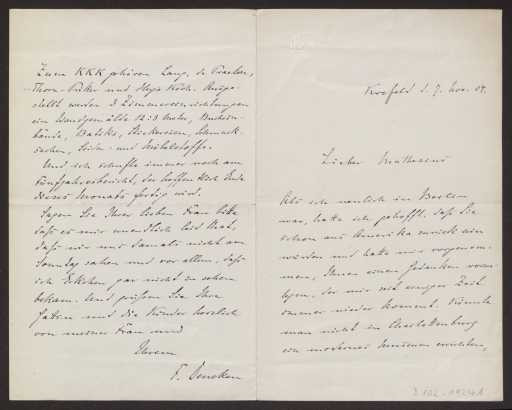 Zum KKK gehören Lang, de Praetere,
Thorn-Prikker und Hugo Koch. Ausge-
stellt werden 3 Zimmereinrichtungen
ein Wandgemälde 12:3 Meter, Buchein-
bände, Batiks, Stickereien, Schmuck-
sachen, Seiden- und Möbelstoffe.
Und ich schufte immer noch am
Fünfjahresbericht, der hoffentlich Ende
dieses Monats fertig wird.
Sagen Sie Ihrer lieben Frau bitte
daß es mir unendlich leid that,
daß wir uns damals nicht am
Sonntag sahen und vor allem, daß
ich gar nicht zu sehen
bekam. Und grüßen Sie Ihre
Gattin und die Kinder herzlich
von meiner Frau und
Ihrem
F. Deneken
Krefeld d. 7. Nov. 04.
Lieber Muthesius
Als ich neulich in Berlin
war, hatte ich gehofft, daß Sie
schon aus Amerika zurück sein
würden und hatte mir vorgenom-
men, Ihnen einen Gedanken vorzu-
legen, der mir seit einiger Zeit
immer wieder kommt. Könnte
man nicht in Charlottenburg
ein modernes Museum errichten,